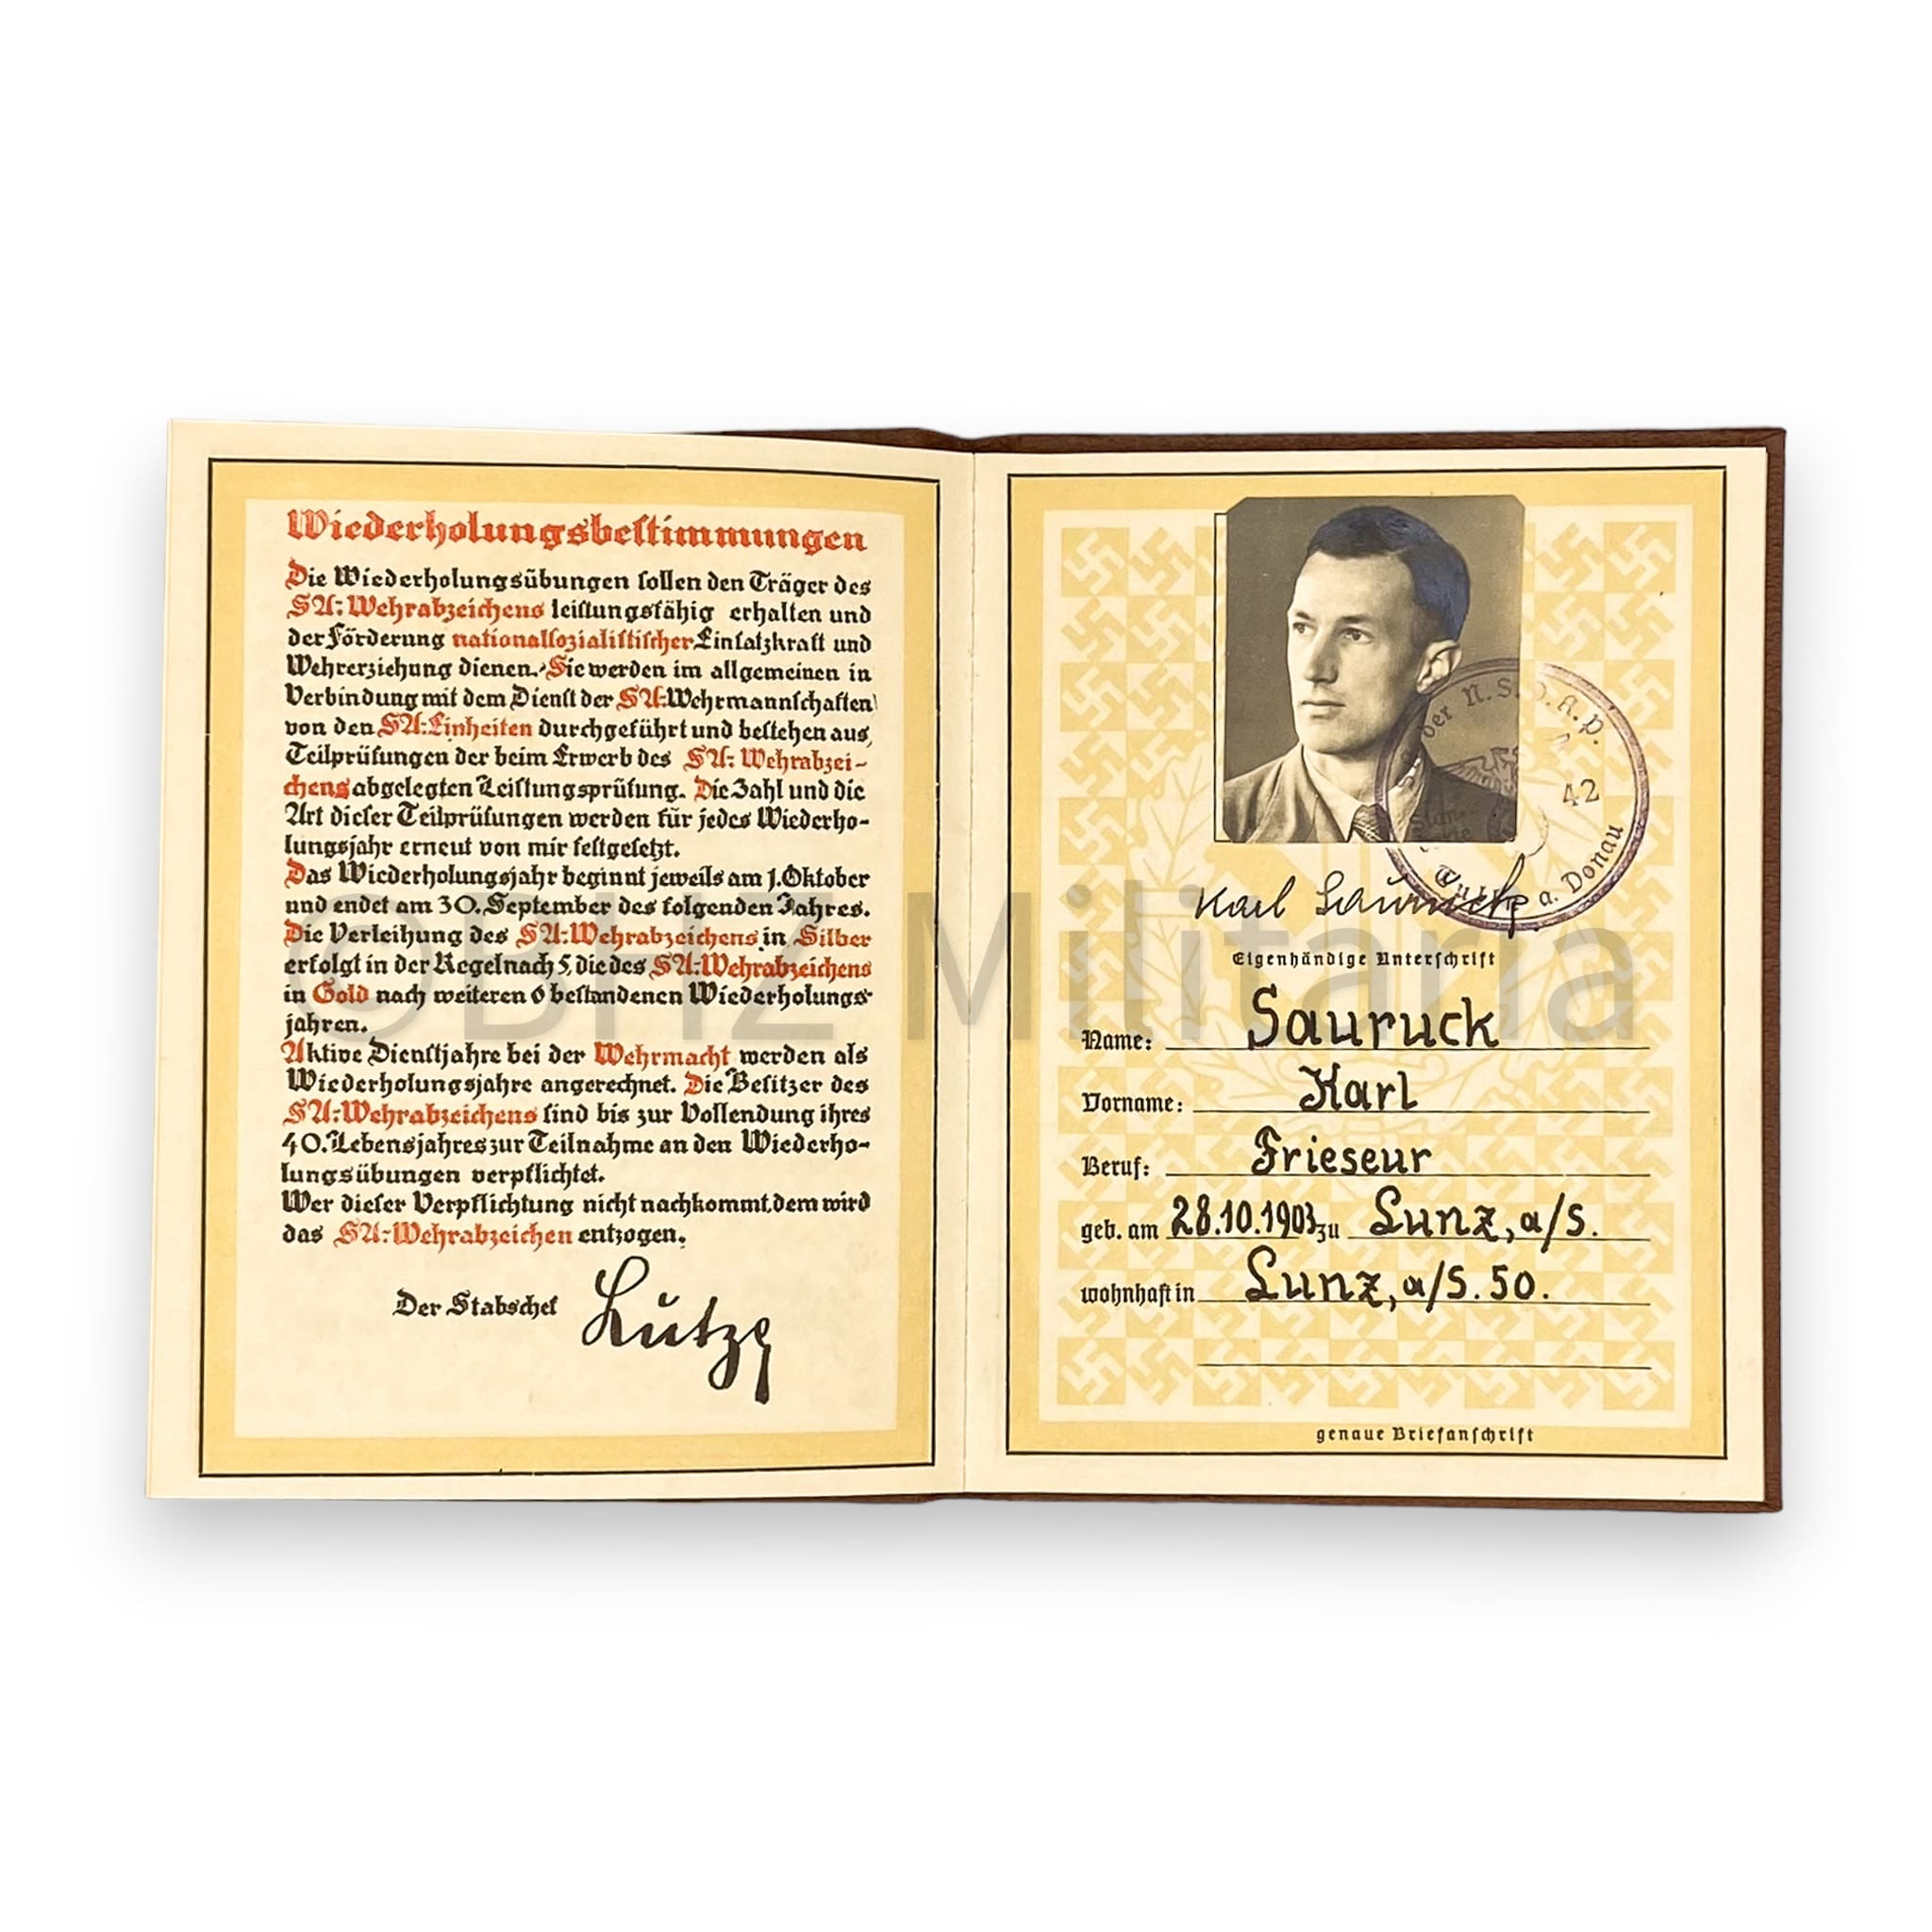 Wiederholungsbestimmungen
Die Wiederholungsübungen sollen den Träger des
SA-Wehrabzeichens leistungsfähig erhalten und
der Förderung nationalsozialistischer Einsatzkraft und
Wehrerziehung dienen. Sie werden im allgemeinen in
Verbindung mit dem Dienst der SA-Wehrmannschaften
von den SA-Einheiten durchgeführt und bestehen aus
Teilprüfungen der beim Erwerb des SA-Wehrabzei-
chens abgelegten Leistungsprüfung. Die Zahl und die
Art dieser Teilprüfungen werden für jedes Wiederho-
lungsjahr erneut von mir festgesetzt.
Das Wiederholungsjahr beginnt jeweils am 1. Oktober
und endet am 30. September des folgenden Jahres.
Die Verleihung des SA-Wehrabzeichens in Silber
erfolgt in der Regel nach 5, die des SA-Wehrabzeichens
in Gold nach weiteren 6 bestandenen Wiederholungs-
jahren.
Aktive Dienstjahre bei der Wehrmacht werden als
Wiederholungsjahre angerechnet. Die Besitzer des
SA-Wehrabzeichens sind bis zur Vollendung ihres
40. Lebensjahres zur Teilnahme an den Wiederho-
lungsübungen verpflichtet.
Wer dieser Verpflichtung nicht nachkommt, dem wird
das SA-Wehrabzeichen entzogen.
Der Stabschef Lutze
der N.S.D.A.P.
42
a. Donau
Karl Sauruck
Eigenhändige Unterschrift
Name: Sauruck
Vorname: Karl
Beruf: Frieseur
geb. am 28.10.1903 zu Lunz, a/S.
wohnhaft in Lunz, a/S. 50.
genaue Briefanschrift
©BHZ Militaria